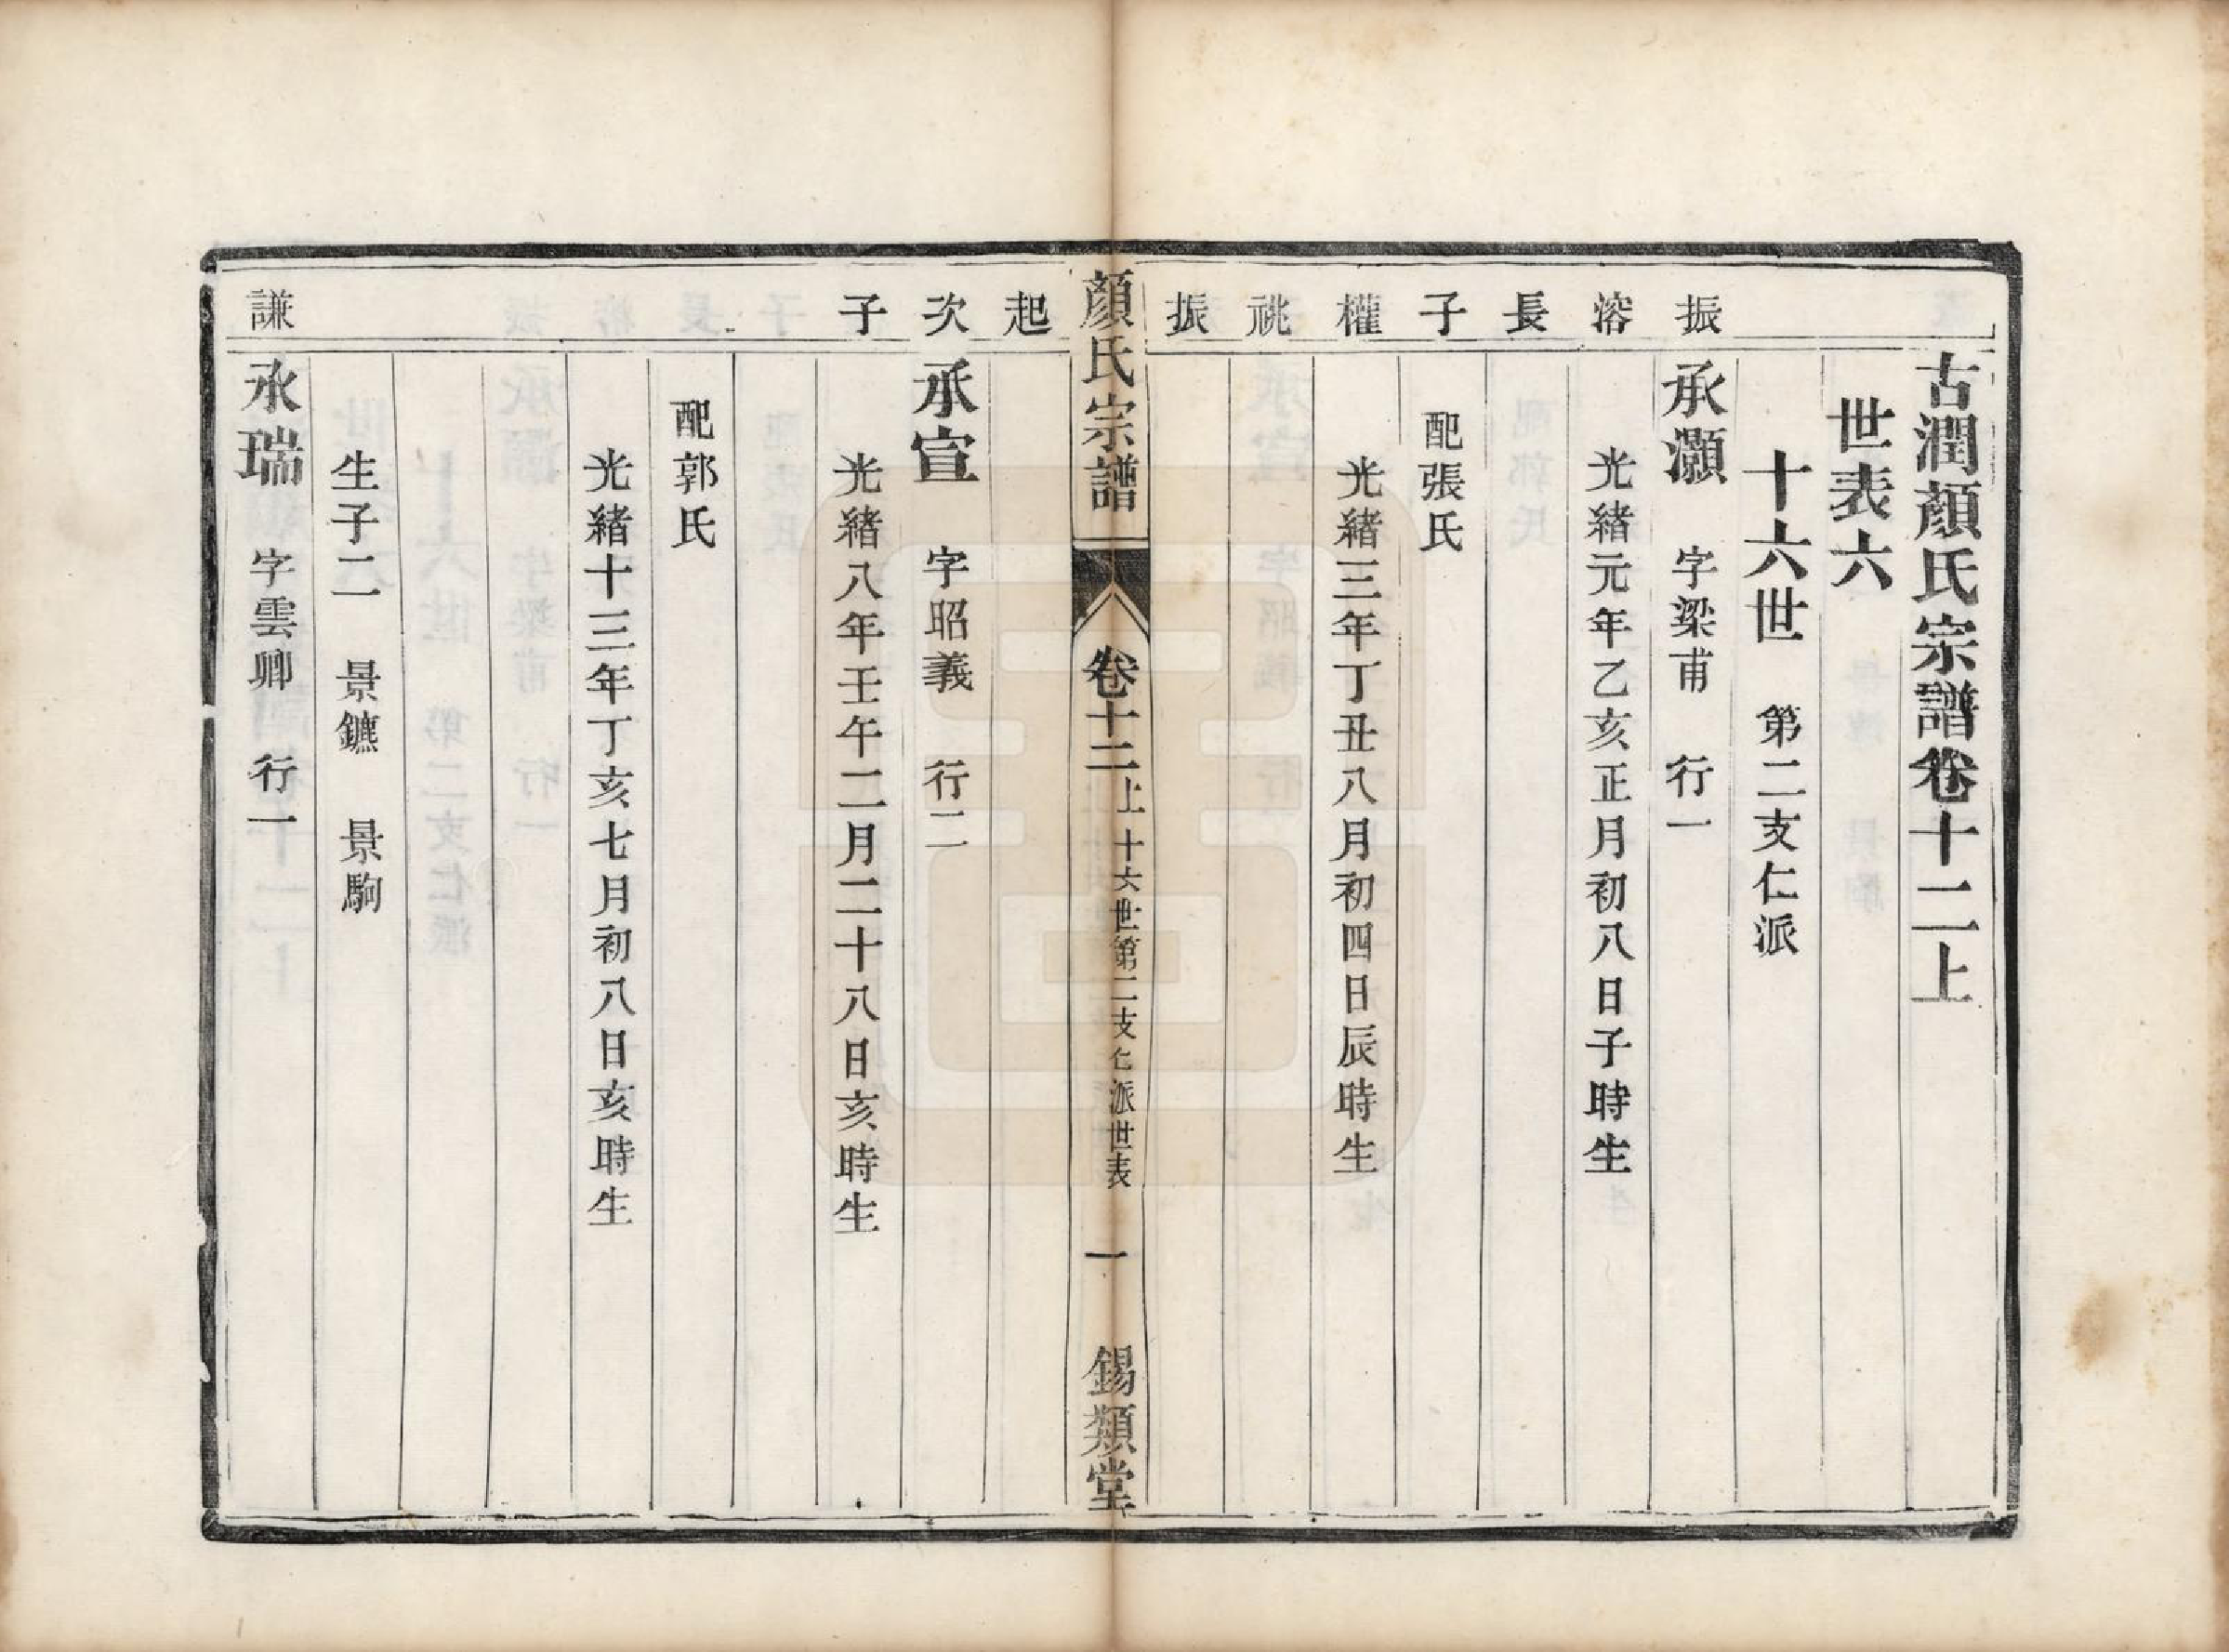 古潤顏氏宗譜卷十二上
世表六
十六世　第二支仁派
振溶長子權祧振
承灝　字梁甫　行一
光緒元年乙亥正月初八日子時生
配張氏
光緒三年丁丑八月初四日辰時生
顏氏宗譜　卷十二上　十六世第二支仁派世表　一　錫類堂
起次子
承宣　字昭義　行二
光緒八年壬午二月二十八日亥時生
配郭氏
光緒十三年丁亥七月初八日亥時生
生子二　景鑣　景駒
謙
承瑞　字雲卿　行一